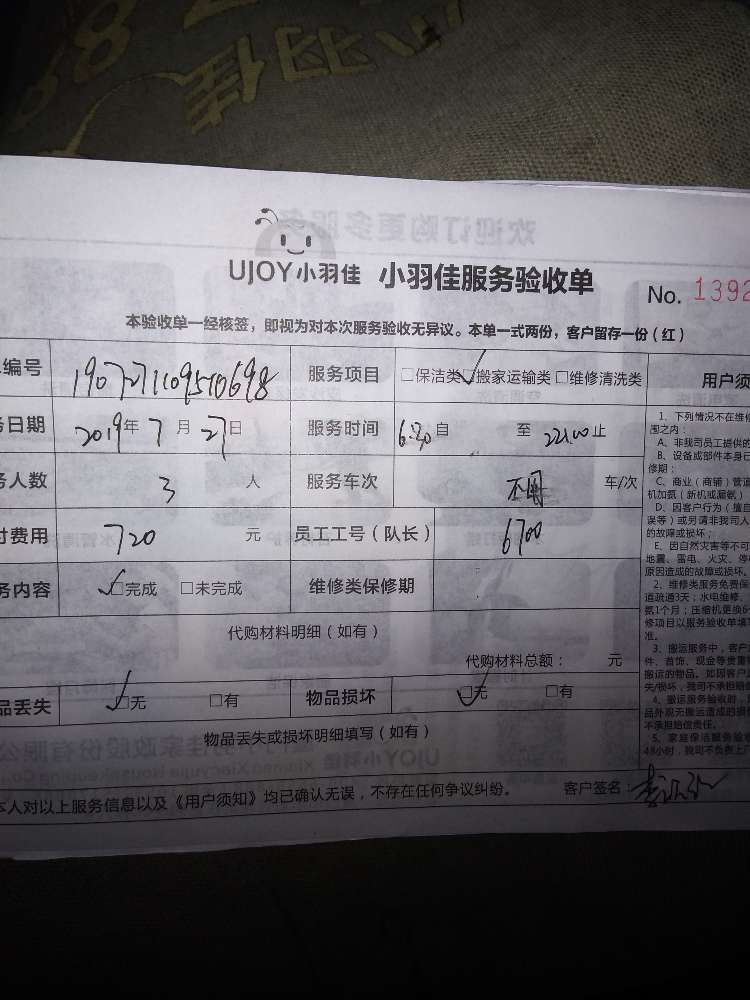 UJOY小羽佳 小羽佳服务验收单 No. 1392
本验收单一经核签，即视为对本次服务验收无异议。本单一式两份，客户留存一份（红）
编号 服务项目 □保洁类 ☑搬家运输类 □维修清洗类 用户须
务日期 2019年 7月 27日 服务时间 6:30自 至 止
务人数 3 人 服务车次 不用 车/次
付费用 720 元 员工工号（队长） 6700
务内容 ☑完成 □未完成 维修类保修期
代购材料明细（如有）
代购材料总额： 元
品丢失 ☑无 □有 物品损坏 ☑无 □有
物品丢失或损坏明细填写（如有）
本人对以上服务信息以及《用户须知》均已确认无误，不存在任何争议纠纷。 客户签名：
1、下列情况不在维修
围之内：
A、非我司员工提供的
B、设备或部件本身已
修期；
C、商业（商铺）管道
机加氨（新机或漏氨）
D、因客户行为（擅自
误等）或另请非我司人
的故障或损坏；
E、因自然灾害等不可
地震、雷电、火灾、停
原因造成的故障或损坏。
2、维修类服务免费保
道疏通3天；水电维修、
氨1个月；压缩机更换6
修项目以服务验收单填
准。
3、搬运服务中，客户
件、首饰、现金等贵重
搬运的物品。如因客户
失/损坏，我司不承担赔
4、搬运服务验收时，
品外观无搬运造成的损
不承担赔偿责任。
5、家庭保洁服务验收
48小时，我司不负责上门